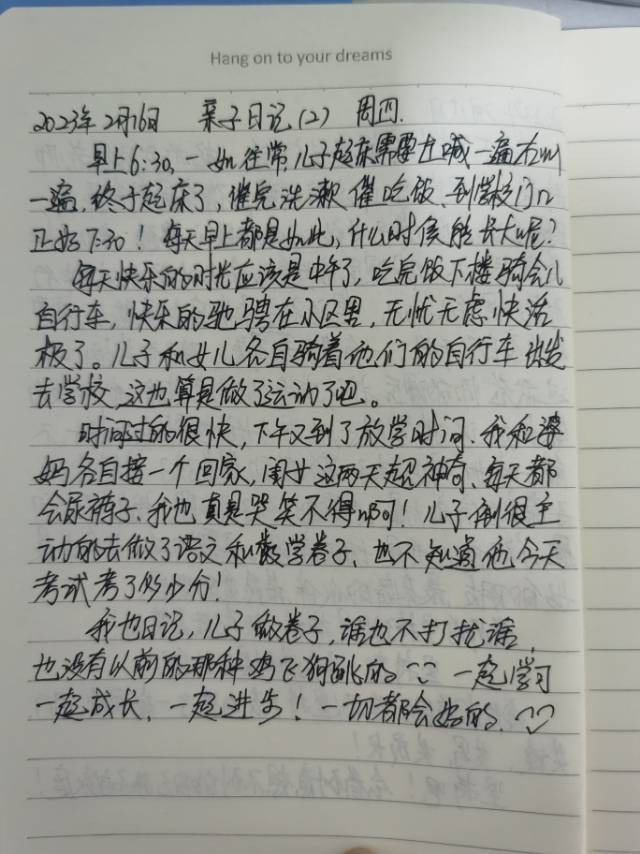 Hang on to your dreams
2023年2月16日 亲子日记(2) 周四.
早上6:30,一如往常,儿子起床需要左喊一遍右叫
一遍,终于起床了,催完洗漱催吃饭、到学校门口
正好7:30!每天早上都是如此,什么时侯能长大呢?
每天快乐的时光应该是中午了,吃完饭下楼骑会儿
自行车,快乐的驰骋在小区里,无忧无虑快活
极了。儿子和女儿各自骑着他们的自行车出发
去学校,这也算是做了运动了吧。
时间过的很快,下午又到了放学时间.我和婆
妈各自接一个回家,闺女这两天超神奇、每天都
会尿裤子、我也真是哭笑不得啊!儿子倒很主
动的去做了语文和数学卷子、也不知道他今天
考试考了多少分!
我也日记,儿子做卷子,谁也不打扰谁,
也没有以前的那种鸡飞狗跳的 一起学习
一起成长、一起进步!一切都会好的、